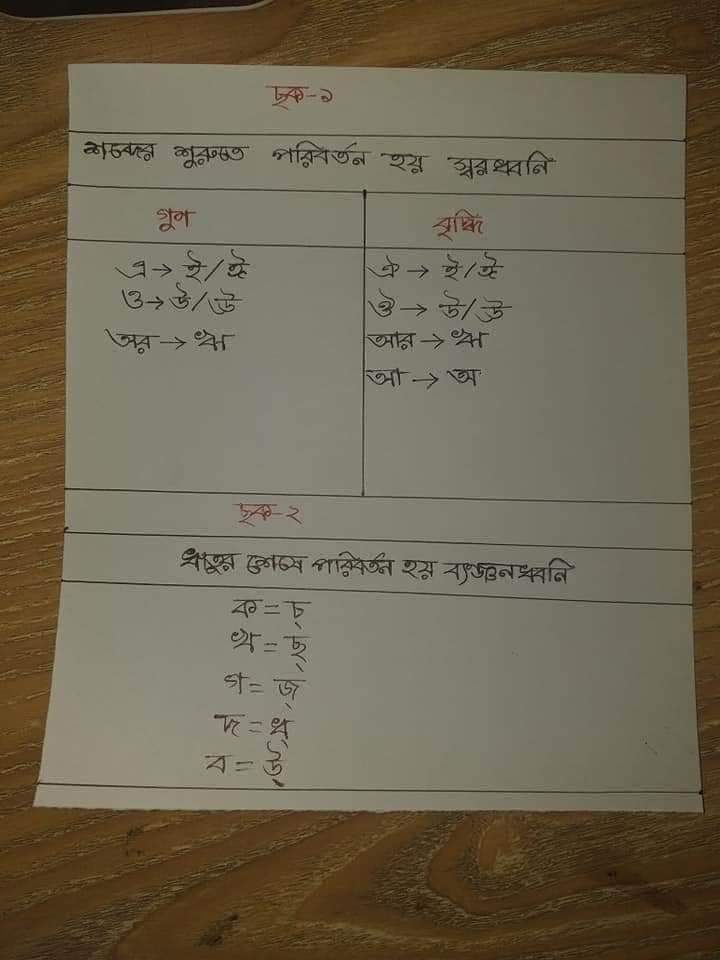 ছক-১
শব্দের শুরুতে পরিবর্তন হয় স্বরধ্বনি
গুণ
বৃদ্ধি
এ → ই/ঈ
ঐ → ই/ঈ
ও → উ/ঊ
ঔ → উ/ঊ
অর → ঋ
আর → ঋ
আ → অ
ছক-২
ধাতুর শেষে পরিবর্তন হয় ব্যঞ্জনধ্বনি
ক = চ্
খ = ছ্
গ = জ্
দ = ধ্
ব = উ্